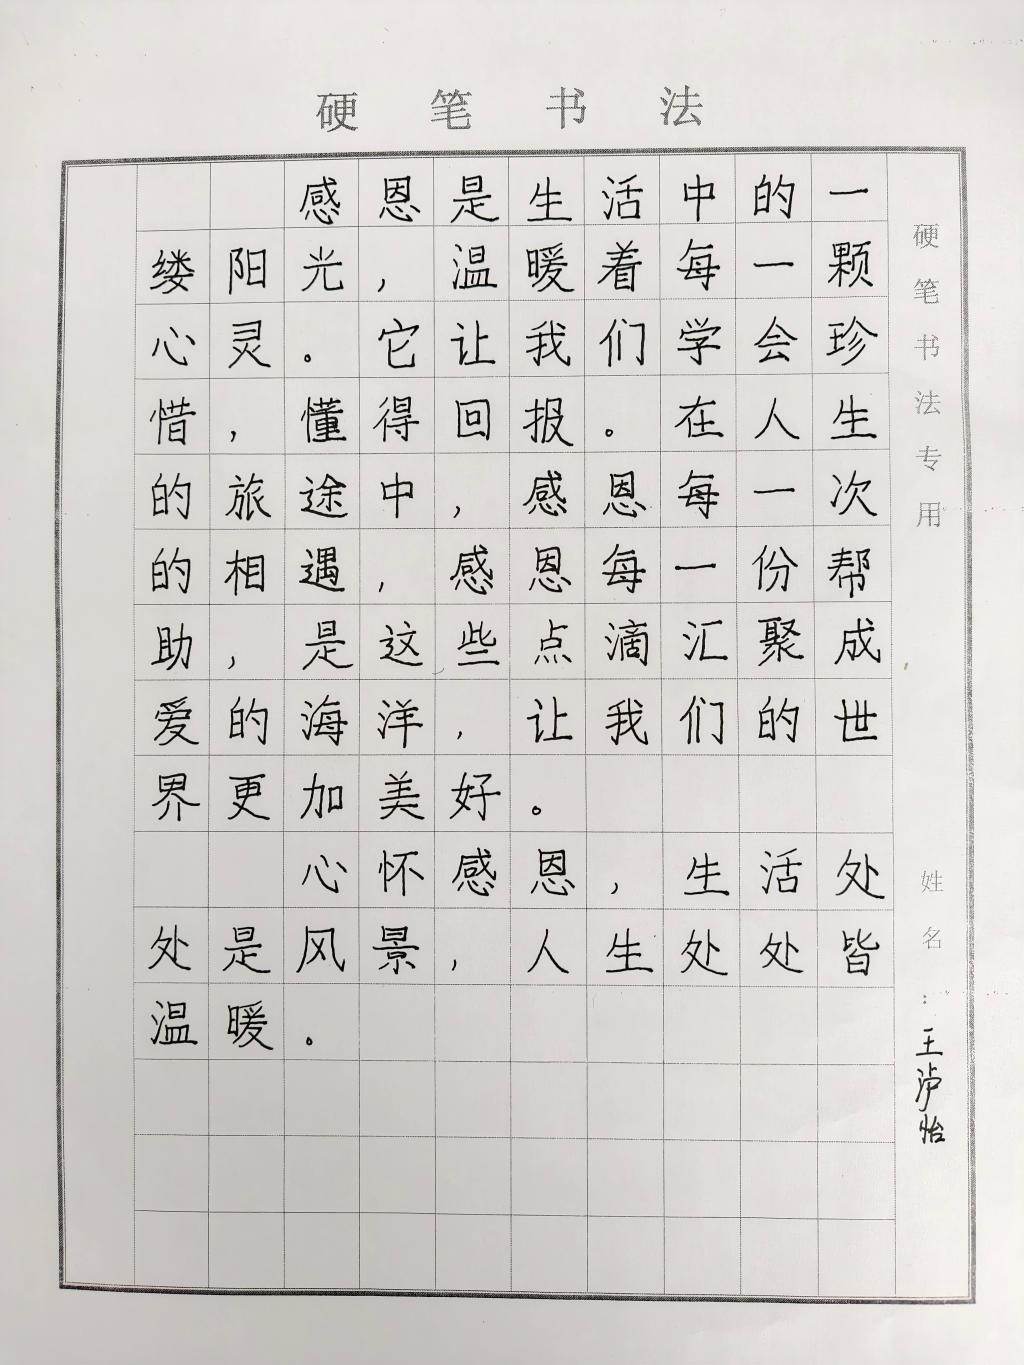 硬笔书法
感恩是生活中的一
缕阳光，温暖着每一颗
心灵。它让我们学会珍
惜，懂得回报。在人生
的旅途中，感恩每一次
的相遇，感恩每一份帮
助，是这些点滴汇聚成
爱的海洋，让我们的世
界更加美好。
心怀感恩，生活处
处是风景，人生处处皆
温暖。
硬笔书法专用
姓名：王泸怡